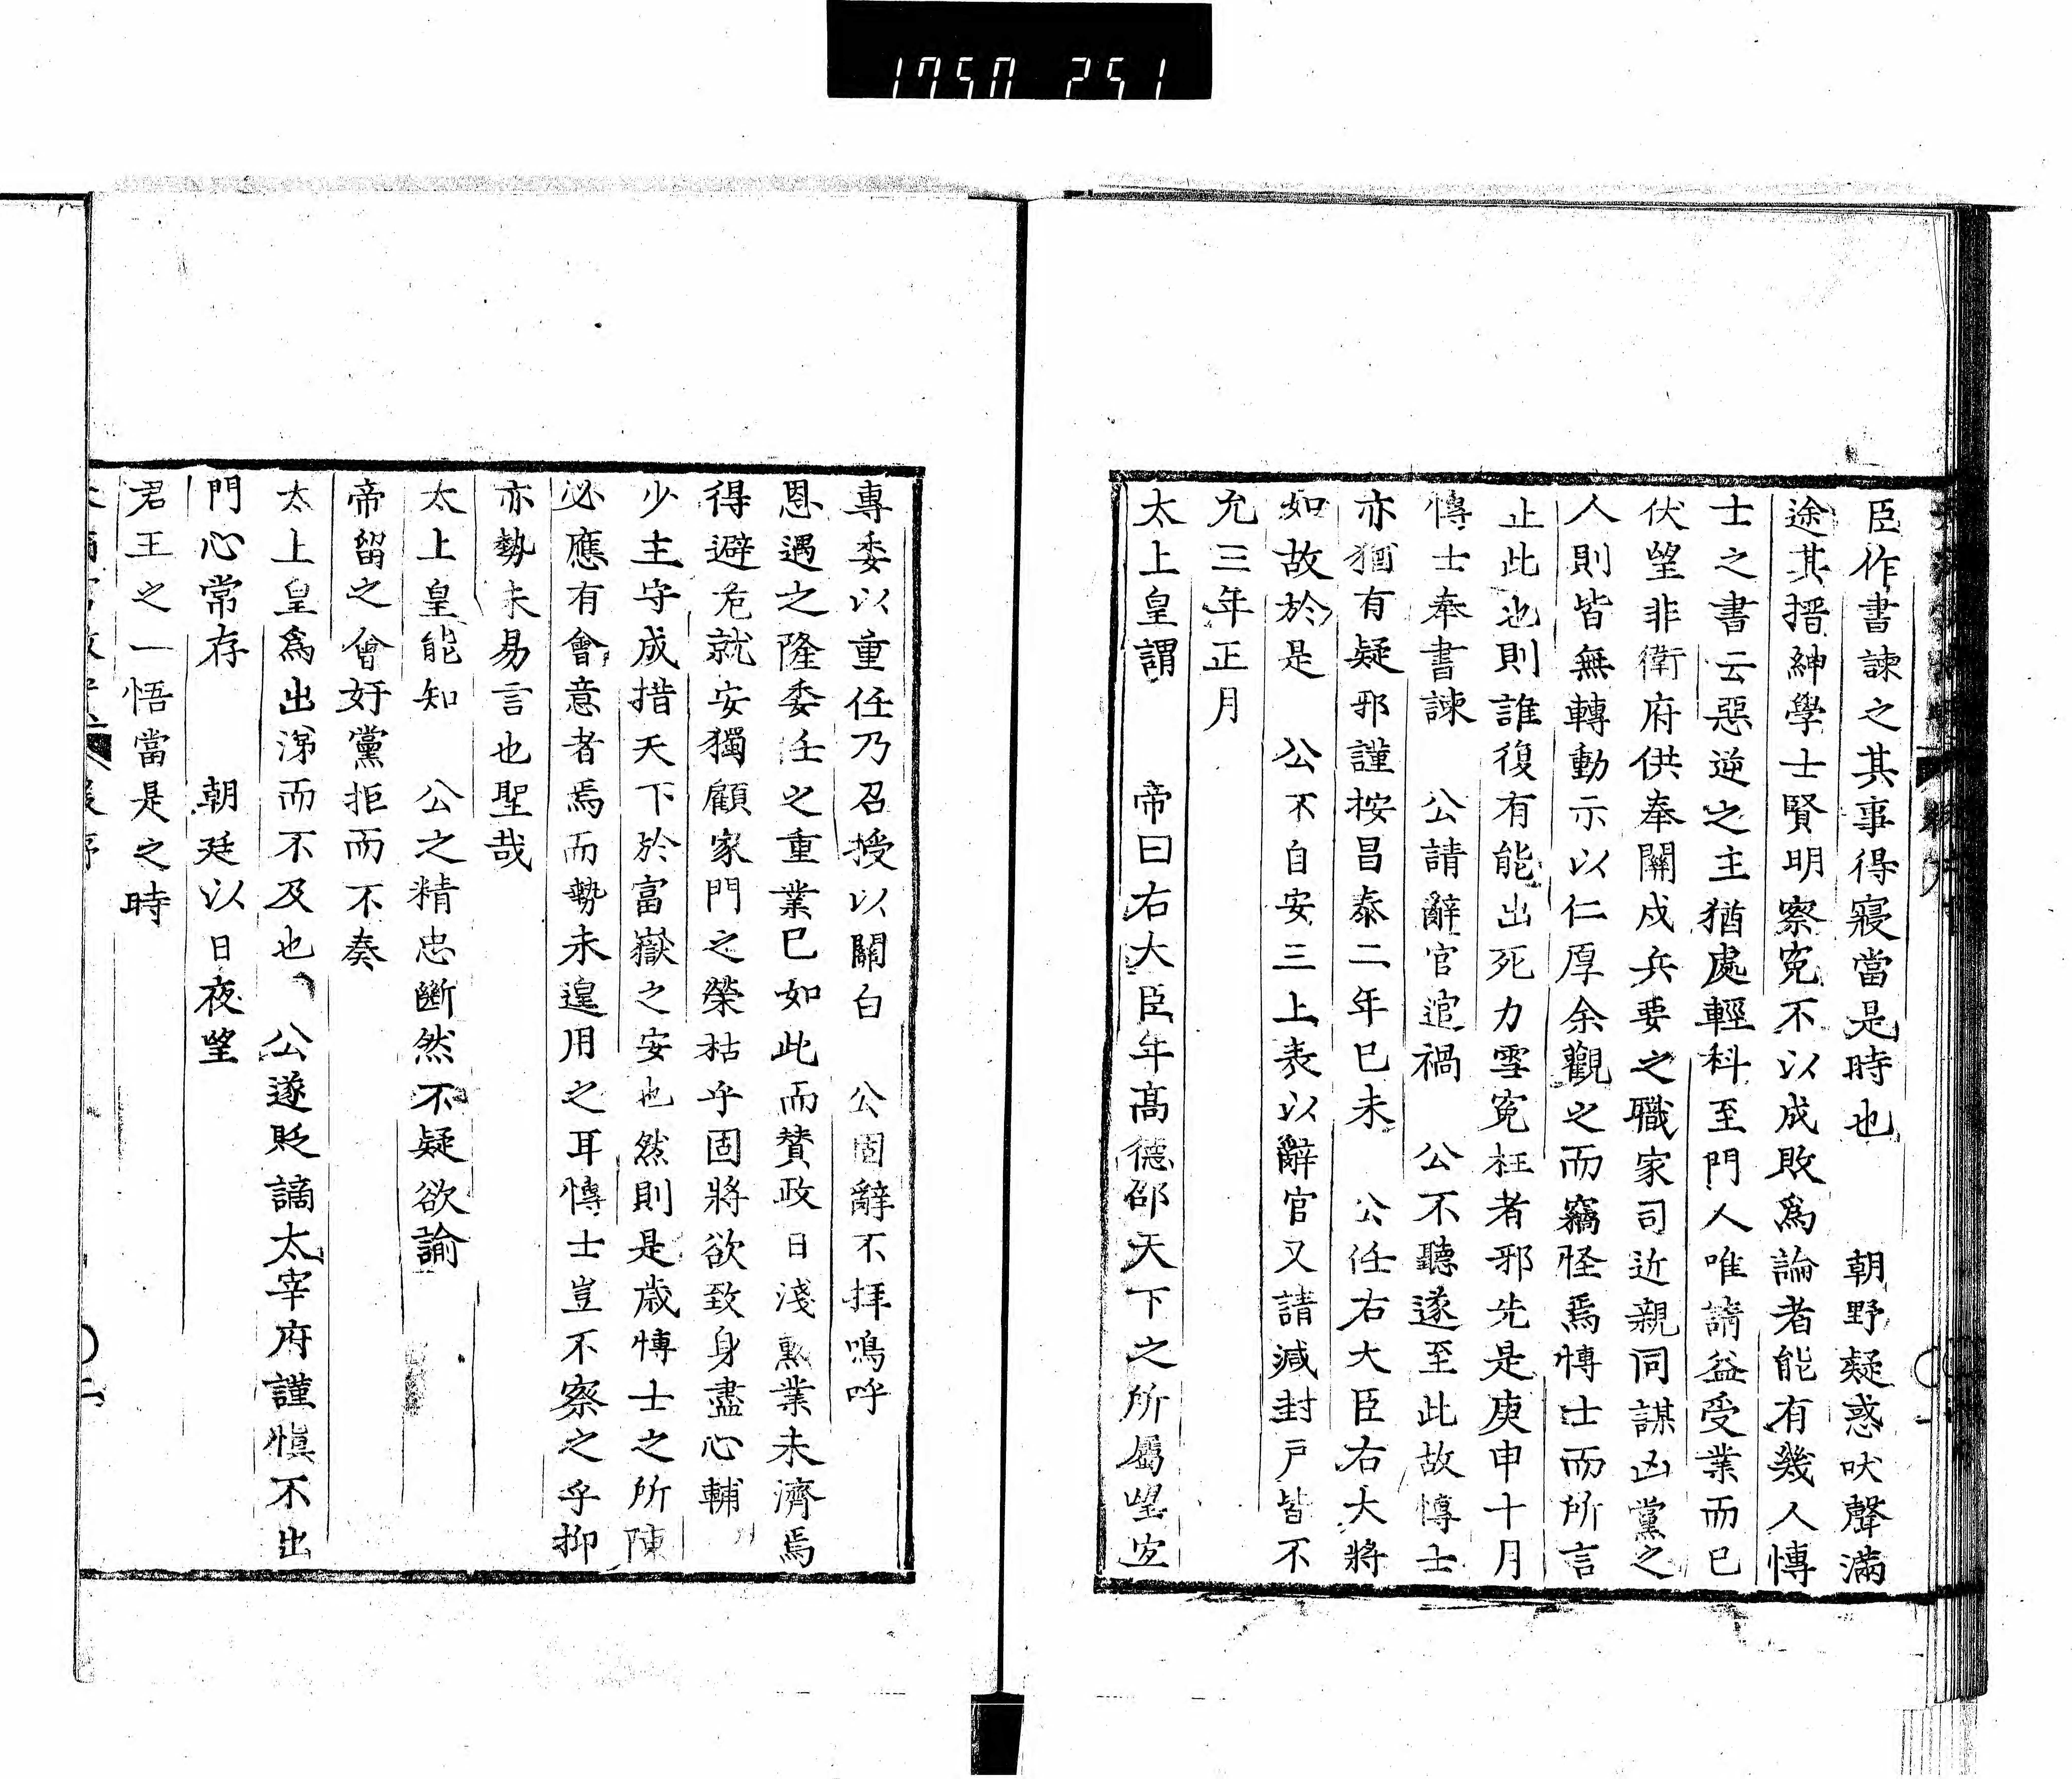 1750 251
臣作書諫之其事得寢當是時也　朝野疑惑吠聲滿
途其搢紳學士賢明察冤不以成敗爲論者能有幾人博
士之書云惡逆之主猶處輕科至門人唯請益受業而已
伏望非衛府供奉關戍兵要之職家司近親同謀凶黨之
人則皆無轉動示以仁厚余觀之而竊怪焉博士而所言
止此也則誰復有能出死力雪冤枉者邪先是庚申十月
博士奉書諫　公請辭官逭禍　公不聽遂至此故博士
亦猶有疑邪謹按昌泰二年已未　公任右大臣右大將
如故於是　公不自安三上表以辭官又請減封戸皆不
允三年正月
太上皇謂　帝曰右大臣年高德邵天下之所屬望宜
專委以重任乃召授以關白　公固辭不拜嗚呼
恩遇之隆委任之重業已如此而贊政日淺勲業未濟焉
得避危就安獨顧家門之榮枯乎固將欲致身盡心輔
少主守成措天下於富嶽之安也然則是歳博士之所陳
必應有會意者焉而勢未遑用之耳博士豈不察之乎抑
亦勢未易言也聖哉
太上皇能知　公之精忠斷然不疑欲諭
帝留之會奸黨拒而不奏
太上皇爲出涕而不及也　公遂貶謫太宰府謹愼不出
門心常存　朝廷以日夜望
君王之一悟當是之時